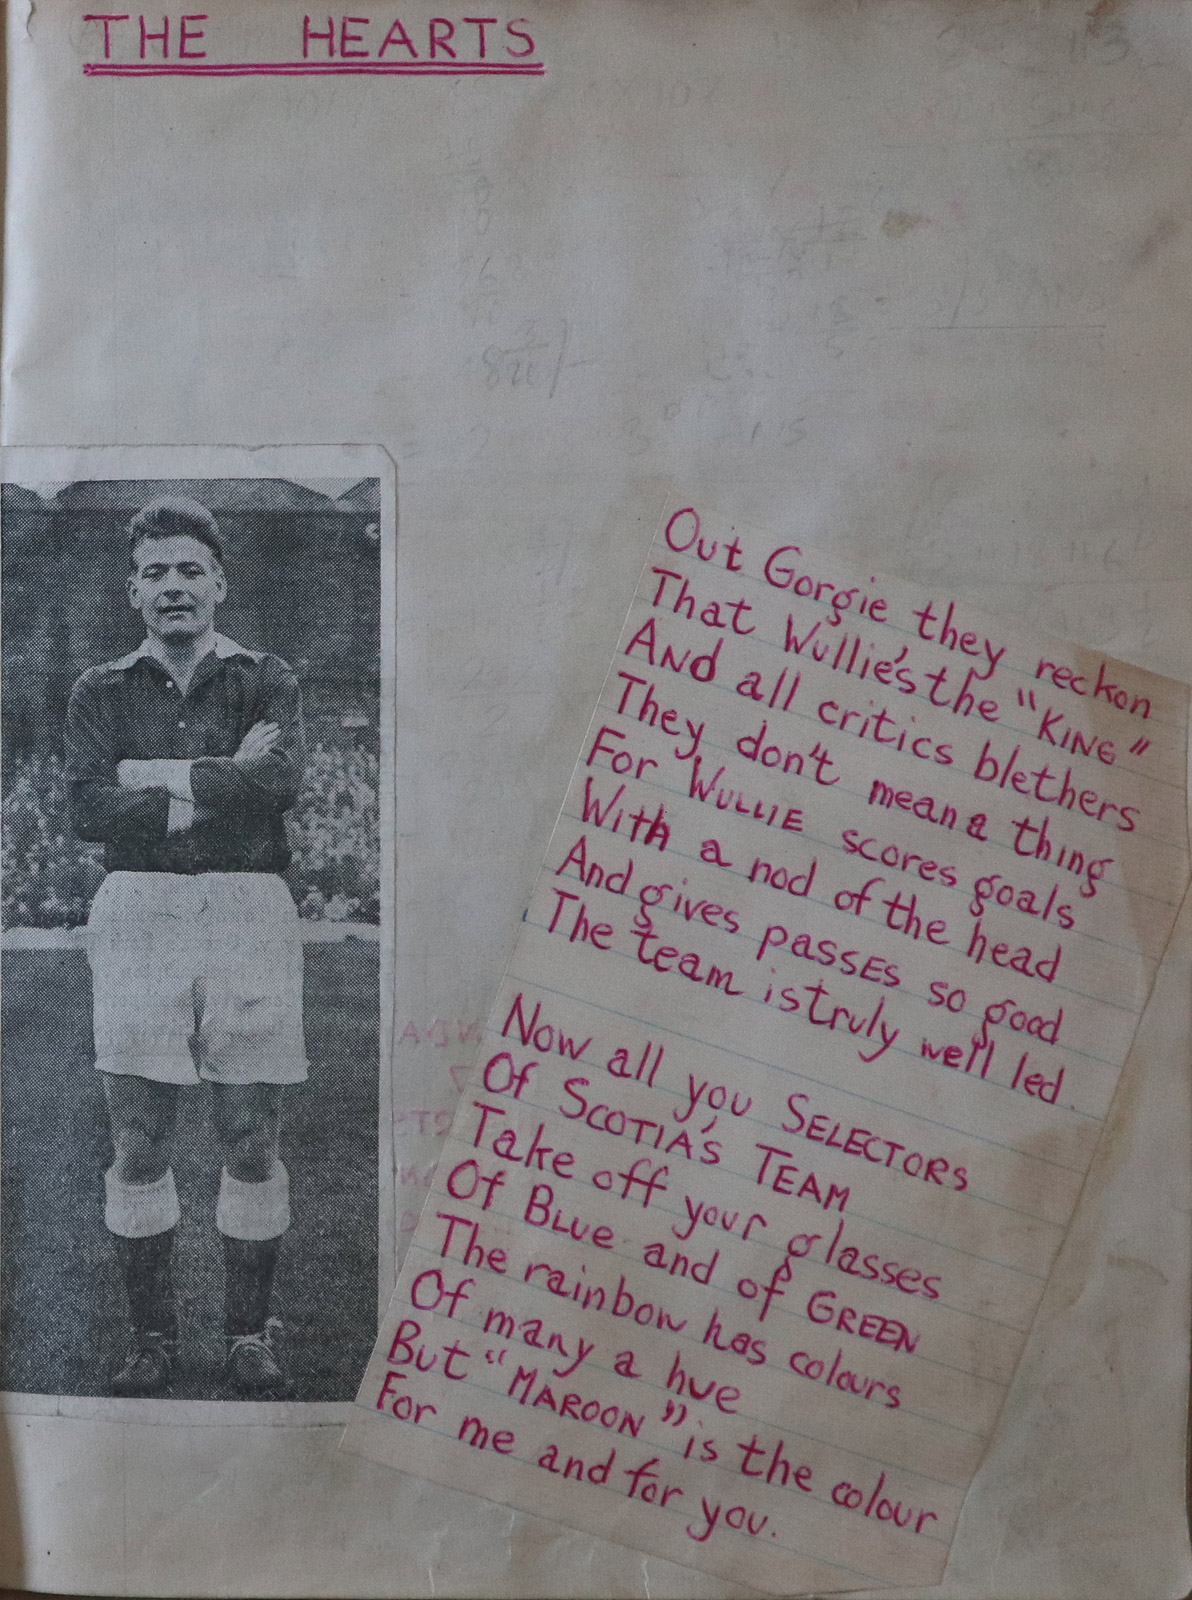 THE HEARTS
Out Gorgie they reckon
That Wullie's the "KING"
And all critics blethers
They don't mean a thing
For WULLIE scores goals
With a nod of the head
And gives passes so good
The team is truly well led.
Now all you SELECTORS
Of SCOTIA'S TEAM
Take off your glasses
Of BLUE and of GREEN
The rainbow has colours
Of many a hue
But "MAROON" is the colour
For me and for you.